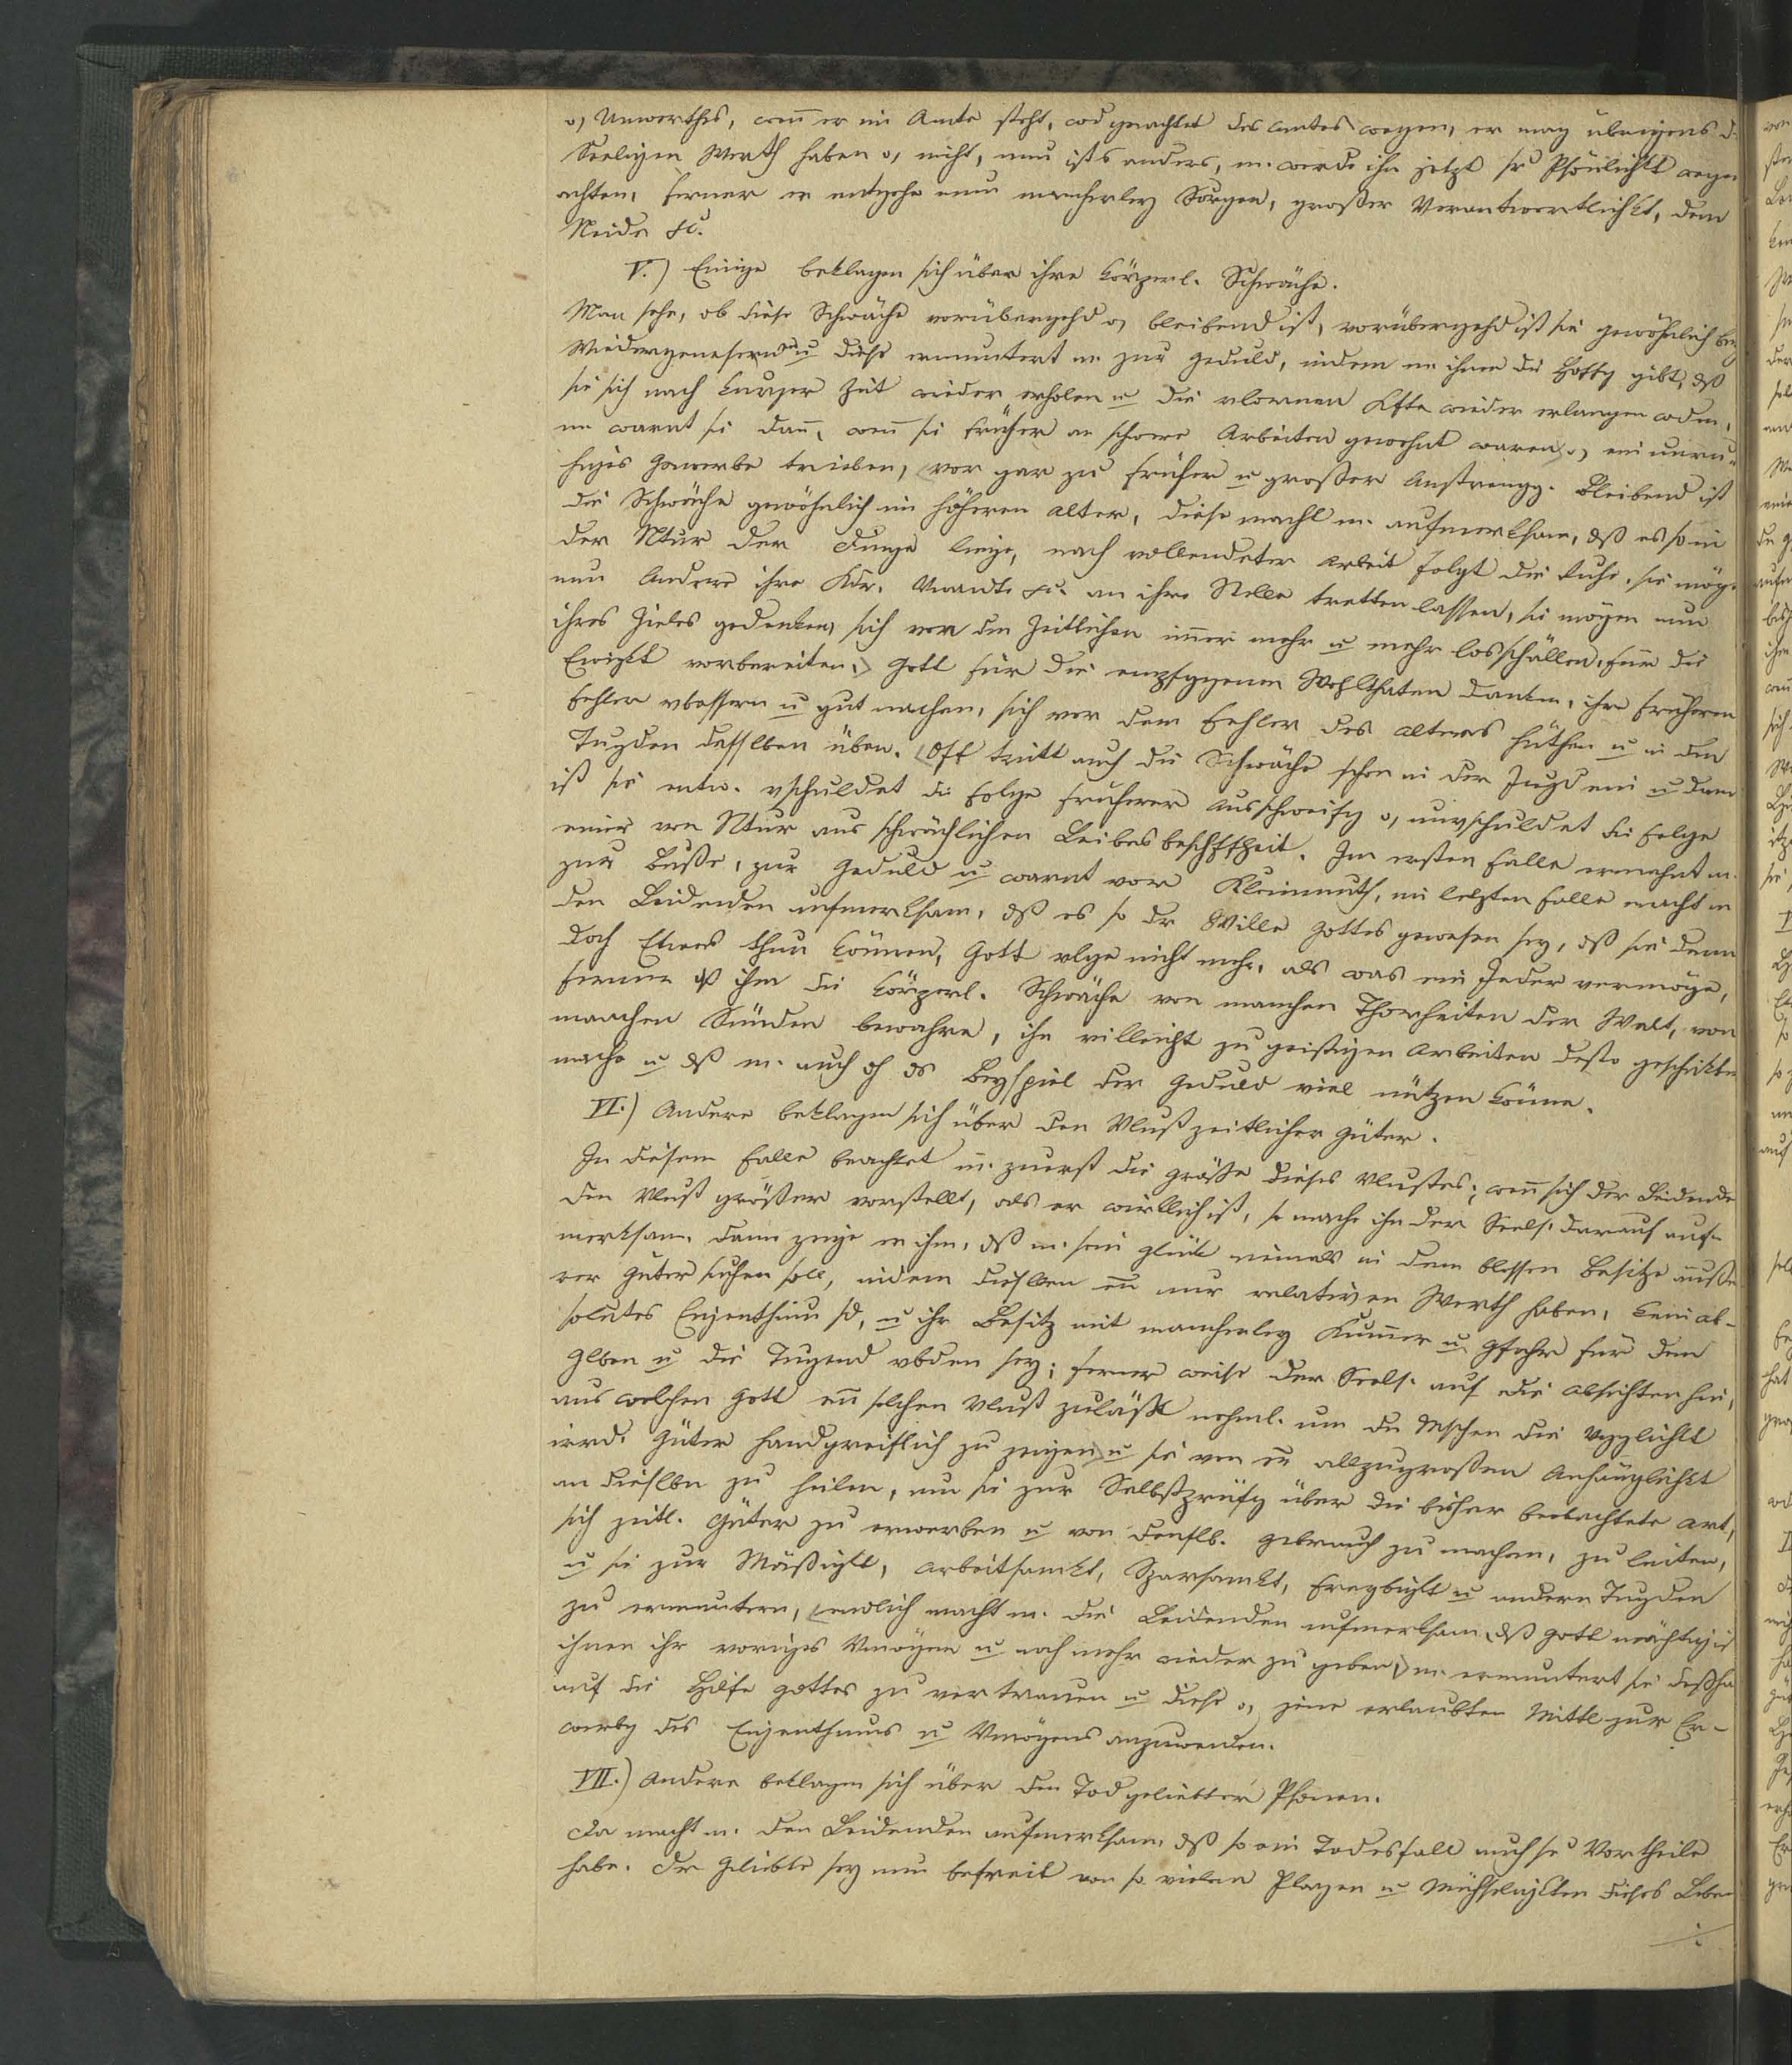 o, Unwerther, wenn er im Amte steht, wd geachtet des Amtes wegen, er mag übrigens d.
Seeligen Werth haben o, nicht, nun ists anders, m. werde ihn jetzt sr Psönlichkt wegen
achten, ferner er entgehe nun mancherley Sorgen, großer Verantwortlichkt, dem
Neide etc.
V.) Einige beklagen sich über ihre körperl. Schwäche.
Man sehe, ob diese Schwäche vorübergehd o, bleibend ist, vorübergehd ist sie gewöhnlich bey
Wiedergenesenden u diese ermuntert m zur Geduld, indem m ihnen die Hoffg gibt, dß
sie sich nach kurzer Zeit wieder erholen u die vlornen Kfte wieder erlangen wden,
m warnt sie dann, wenn sie früher an schwere Arbeiten gewohnt waren o, ein unru-
higes Gewerbe trieben, vor gar zu früher u großer Anstrengg. Bleibend ist
die Schwäche gewöhnlich im höheren Alter, diese macht m. aufmerksam, dß es so in
der Ntur der Dinge liege, nach vollendeter Arbeit folgt die Ruhe, sie mög.
nun Andere ihre Kdr. Vwandte etc. an ihre Stelle tretten lassen, sie mögen nun
ihres Zieles gedenken, sich von den Zeitlichen immer mehr u mehr losschällen, für die
Ewigkt vorbereiten, Gott für die empfggenen Wohlthaten danken, ihre früheren
Fehler vbessern u gut machen, sich vor dem Fehler des Alters hüthen u in den
Tugden desslben üben. Oft tritt auch die Schwäche schon in der Jugd ein u dann
ist sie entw. vschuldet die Folge früherer Ausschweifg o, unvschuldet die Folge
einer von Ntur aus schwächlichen Leibesbeschffheit. Im ersten Falle ermahnt m.
zur Buße, zur Geduld u warnt vor Kleinmuth, im letzten Falle macht m
den Leidenden aufmerksam, dß es so dr Wille Gottes gewesen sey, dß sie denn
doch Etwas thun können, Gott vlge nicht mehr, als was ein Jeder vermöge,
ferner dß ihn die körperl. Schwäche von manchen Thorheiten der Welt, von
manchen Sünden bewahre, ihn villeicht zu geistigen Arbeiten desto geschickter
mache u dß m. auch dh ds Beyspiel der Geduld viel nützen könne.
VI.) Andere beklagen sich über den Vlust zeitlicher Güter.
In diesem Falle beachtet m. zuerst die Größe dieses Vlustes; wenn sich der Leidende
den Vlust größer vorstellt, als er wirklich ist, so mache ihn der Seels. darauf auf-
merksam, dann zeige er ihm, dß m. sein Glück niemals in dem blossen Besitze äuße-
rer Güter suchen soll, indem dieslben nur relativen Werth haben, kein ab-
solutes Eigenthum sd, u ihr Besitz mit mancherley Kummer u Gfahr für den
Glben u die Tugend vbden sey; ferner weise der Seels. auf die Absichten hin,
aus welchen Gott solchen Vlust zuläßt nehml. um die Mschen die Vgglichkt
irrd. Güter handgreiflich zu zeigen u sie von allzugroßen Anhänglichkt
an dieslbn zu heilen, um sie zur Selbstprüfg über die bisher beobachtete Art,
sich zeitl. Güter zu erwerben u von denslb. Gebrauch zu machen, zu leiten,
u sie zur Mäßigkt, Arbeitsamkt, Sparsamkt, Freygbigkt u andern Tugden
zu ermuntern, endlich macht m. die Leidenden aufmerksam, dß Gott mächtig ist
ihnen ihr voriges Vmögen u noch mehr wieder zu geben, m. ermuntert sie deßha
auf die Hilfe Gottes zu vertrauen u diese o, jene erlaubten Mittl zur Er-
werbg des Eigenthums u Vmögens anzuwenden.
VII.) Andere beklagen sich über den Tod geliebter Psonen.
Da macht m. den Leidenden aufmerksam, dß so ein Todesfall auch se Vortheile
habe. Dr Geliebte sey nun befreit von so vielen Plagen u Mühseligkten dieses Leben